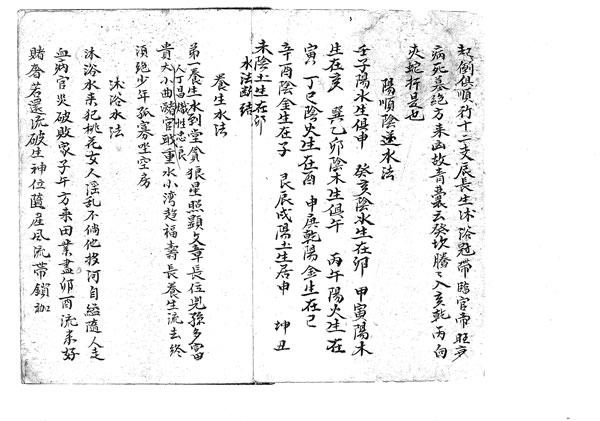 起倒俱順行十二支辰長生沐浴冠帶臨官帝旺衰
病死墓絕方来凶故青囊云癸坎騰騰入亥乾丙向
火蛇行是也
陽順陰逆水法
壬子陽水生俱申 癸亥陰水生在卯 甲寅陽木
生在亥 巽乙卯陰木生俱午 丙午陽火生在
寅 丁巳陰火生在酉 申庚乾陽金生在巳
辛酉陰金生在子 艮辰戌陽土生居申 坤丑
未陰土生在卯
水法斷訣
養生水法
第一養生水到堂貪狼星照顯文章長位兒孫多富
貴 人丁昌熾性忠良 水小曲踌官職重水小湾超福壽長養生流去終
須絕少年孤寡坐空房
沐浴水法
沐浴水来犯桃花女人淫乱不倘他投河自縊隨人走
血病官災破敗家子午方来田業盡卯酉流来好
賭奢若還流破生神位隨屋風流帶鎖枷